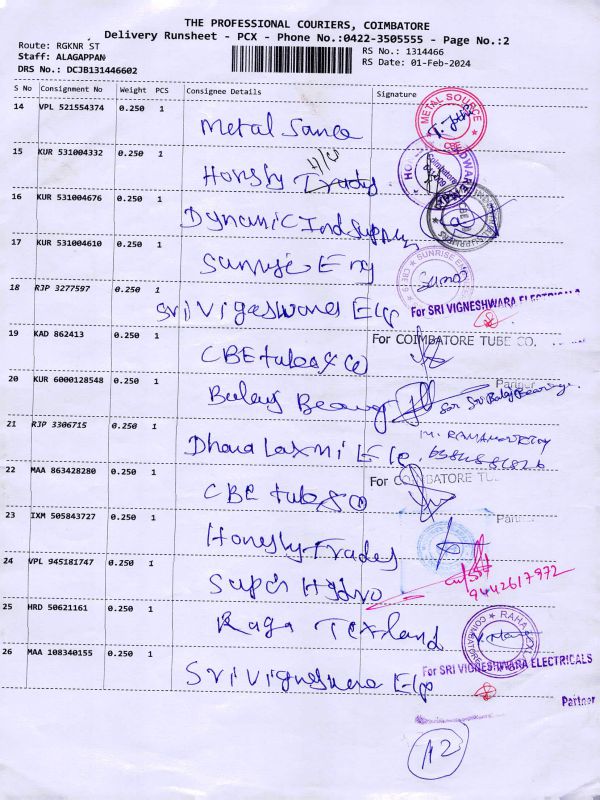 THE PROFESSIONAL COURIERS, COIMBATORE
Delivery Runsheet - PCX - Phone No.:0422-3505555 - Page No.:2
Route: RGKNR ST RS No.: 1314466
Staff: ALAGAPPAN RS Date: 01-Feb-2024
DRS No.: DCJB131446602
S No Consignment No Weight PCS Consignee Details Signature
14 VPL 521554374 0.250 1
METAL SOURCE
CBE
Metal
15 KUR 531004332 0.250 1
Coimbatore
Honesty Tradrs
16 KUR 531004676 0.250 1
Dynamic Ind Supplies
17 KUR 531004610 0.250 1
SUNRISE
Sunrise Eng
18 RJP 3277597 0.250 1
Sri Vigneswara Elp
For SRI VIGNESHWARA ELECTRICALS
19 KAD 862413 0.250 1
For COIMBATORE TUBE CO.
CBE tubes & Co
Partner
20 KUR 6000128548 0.250 1
Balaji Bearing
for Sri Balaji Bearings
21 RJP 3306715 0.250 1
Dhana Laxmi Elc
22 MAA 863428280 0.250 1
For COIMBATORE TUB
CBE tubes
Partner
23 IXM 505843727 0.250 1
Honesty Trades
24 VPL 945181747 0.250 1
9442617972
Super Hydro
25 HRD 50621161 0.250 1
RAHA
Raga Texland
26 MAA 108340155 0.250 1
For SRI VIGNESHWARA ELECTRICALS
Sri Vigneswara Elp
Partner